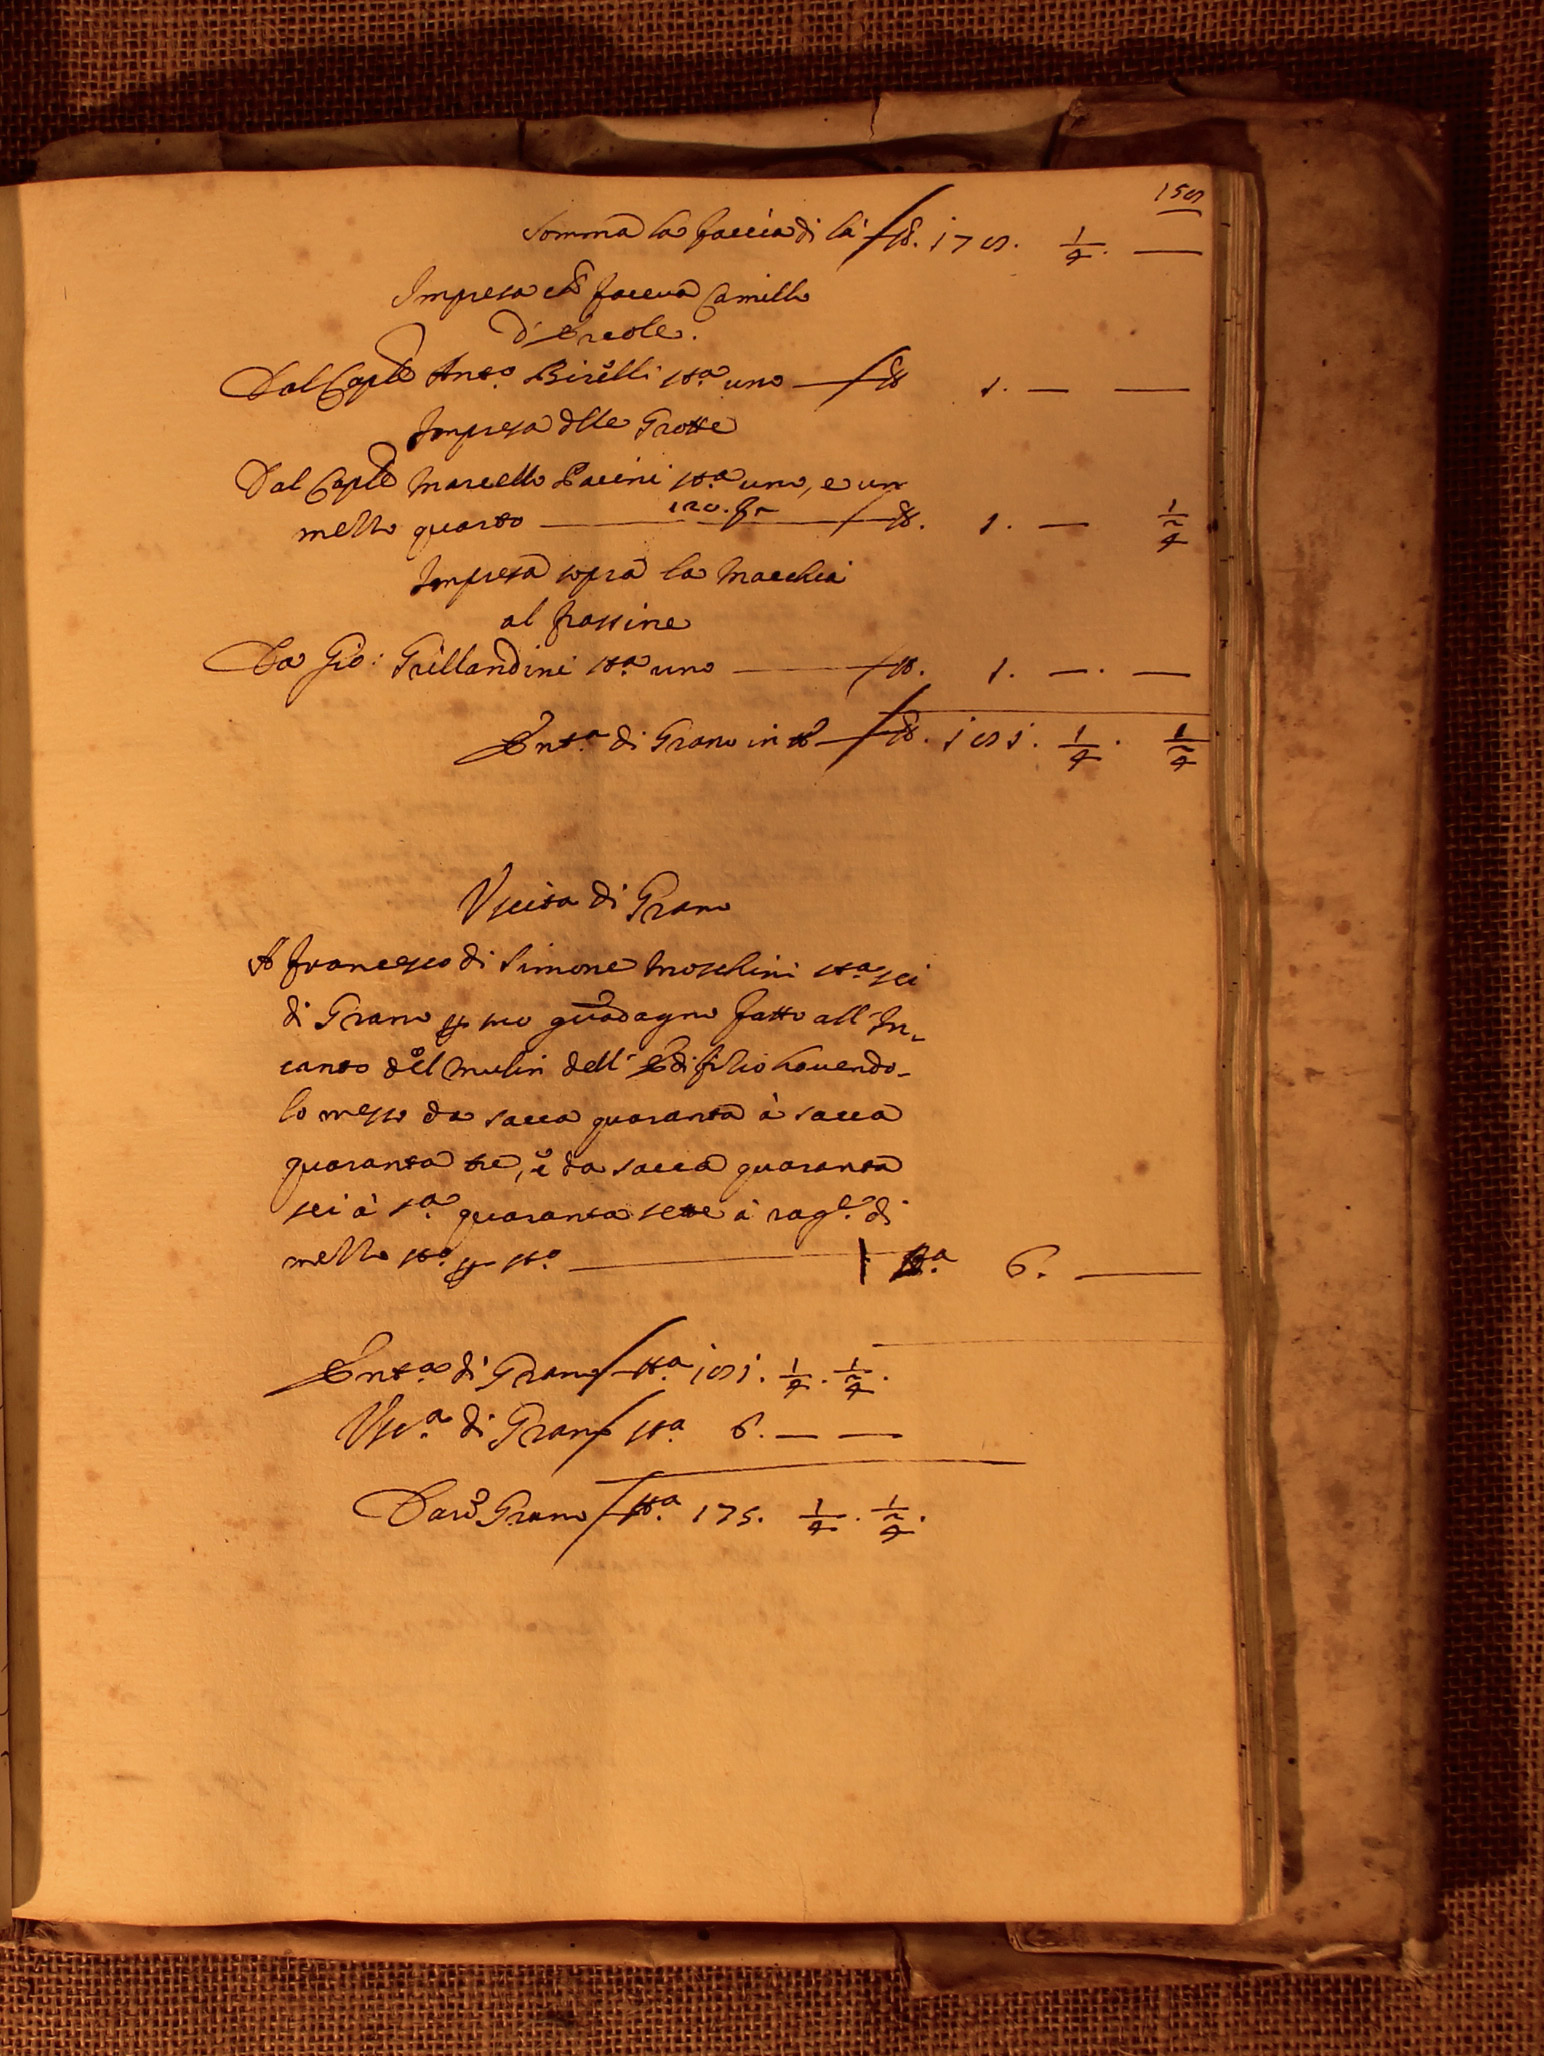 158
Somma la faccia di là St. 178. 1/4. —
Impresa che faceva Camillo
d'Ercole.
Dal Capno Anto Birelli sta uno — St 1. — —
Impresa delle Grotte
Dal Capno Marcello Pacini sta uno, e un
mezzo quarto — — St. 1. — 1/2/4
Impresa sopra la Macchia
al frassine
Da Gio: Grillandini sta uno — St. 1. — . —
Entta di Grano in tt — St. 181. 1/4. 1/2/4
Uscita di Grano
A francesco di Simone Moschini sta sei
di Grano p suo guadagno fatto all' In-
canto del Mulin dell' Edifizio havendo-
lo messo da sacca quaranta à sacca
quaranta tre, e da sacca quaranta
sei à sa quaranta sette à rage di
mezzo sto. p sto. — Sta. 6. —
Entta di Grano sta. 181. 1/4. 1/2/4.
Uscta di Grano sta 6. — —
Grano sta. 175. 1/4. 1/2/4.